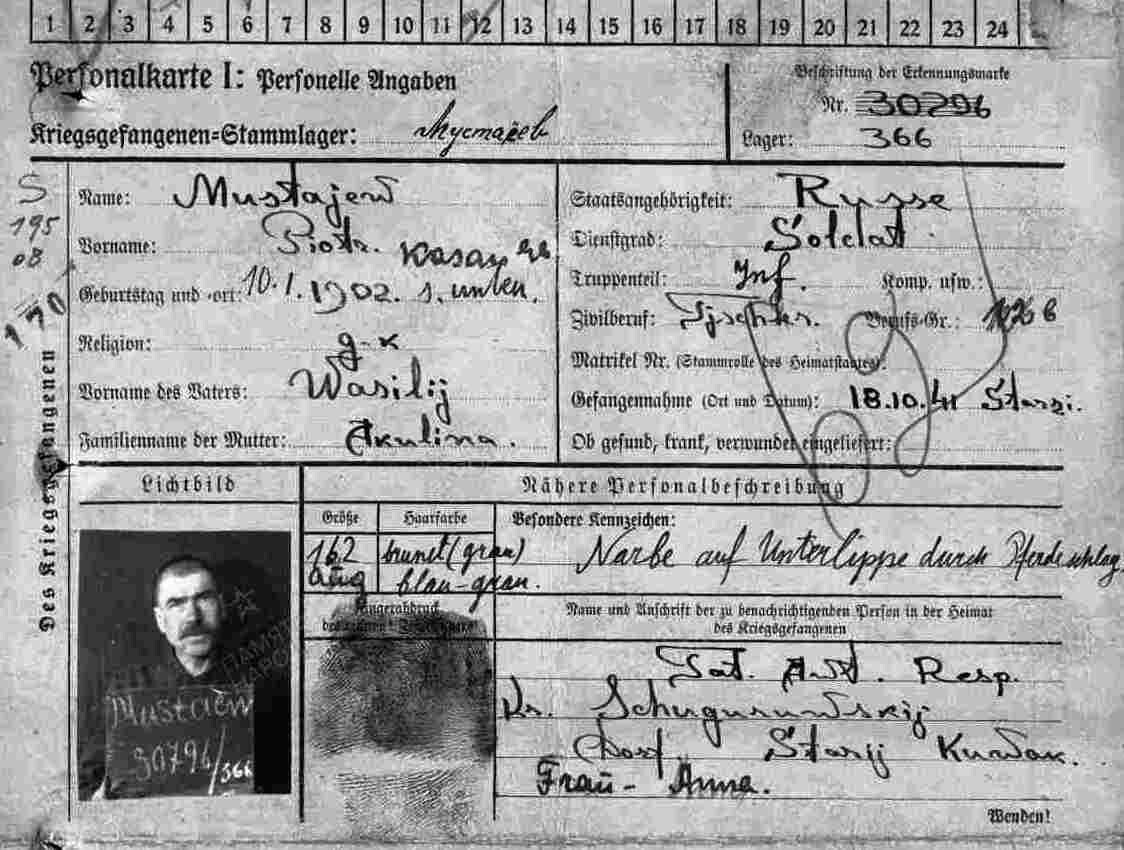 1 2 3 4 5 6 7 8 9 10 11 12 13 14 15 16 17 18 19 20 21 22 23 24
Personalkarte I: Personelle Angaben
Kriegsgefangenen=Stammlager: Мустаев
Beschriftung der Erkennungsmarke
Nr. 30796
Lager: 366
S
195
08
170
Des Kriegsgefangenen
Name: Mustajew
Vorname: Piotr. Kasan
Geburtstag und -ort: 10.1.1902. s. unten.
Religion: g-k
Vorname des Vaters: Wasilij
Familienname der Mutter: Akulina.
Staatsangehörigkeit: Russe
Dienstgrad: Soldat
Truppenteil: Inf. Komp. usw.:
Zivilberuf: Tischler. Berufs-Gr.:
Matrikel Nr. (Stammrolle des Heimatstaates):
Gefangennahme (Ort und Datum): 18.10.41 Starzi.
Ob gesund, krank, verwundet eingeliefert:
Lichtbild
Nähere Personalbeschreibung
Größe Haarfarbe Besondere Kennzeichen:
162 brünet (grau) Narbe auf Unterlippe durch Pferdeschlag
Aug blau-grau.
Fingerabdruck
Name und Anschrift der zu benachrichtigenden Person in der Heimat
des Kriegsgefangenen
Tat. Aut. Resp.
Kr. Schugurowskij
Dorf Starij Kuwak.
Frau - Anna.
Wenden!
Mustaew
30796/366
ПАМЯТЬ
НАРОДА